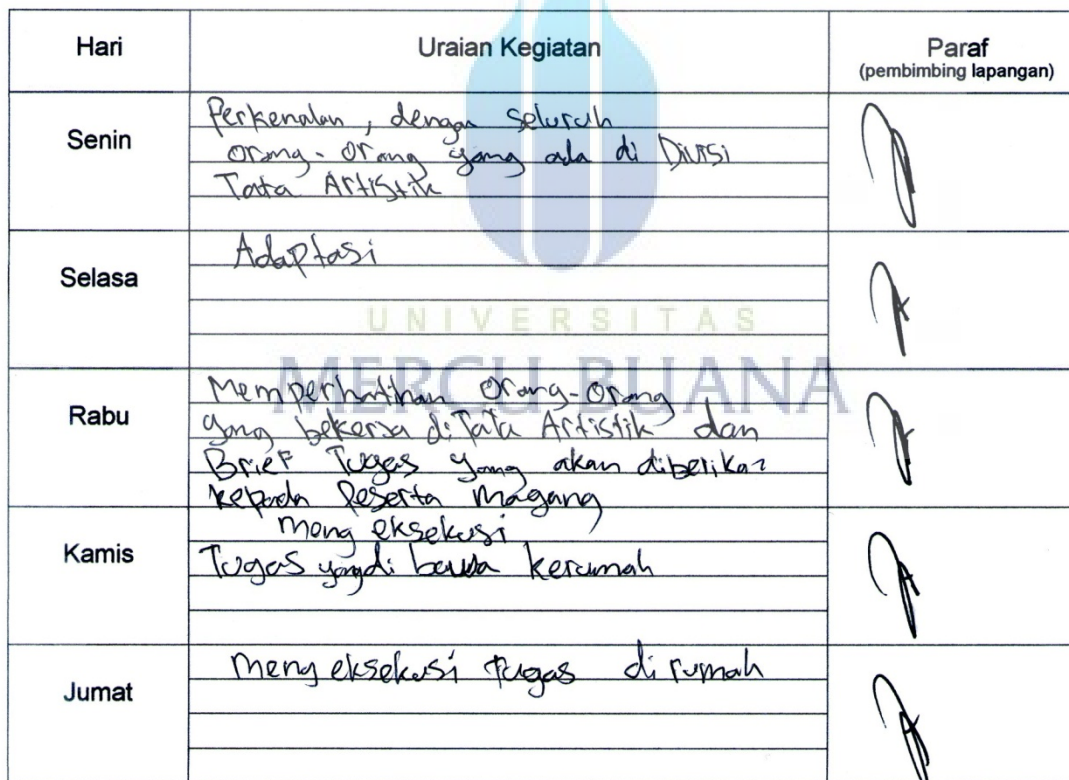 Hari Uraian Kegiatan Paraf
(pembimbing lapangan)
Senin
Perkenalan, dengan seluruh
orang-orang yang ada di Divisi
Tata Artistik
Selasa
Adaptasi
UNIVERSITAS
MERCU BUANA
Rabu
Memperhatihan orang-orang
yang bekerja di Tata Artistik dan
Brief Tugas yang akan diberikan
kepada Peserta magang
Kamis
meng eksekusi
Tugas yang di bawa kerumah
Jumat
meng eksekusi tugas di rumah